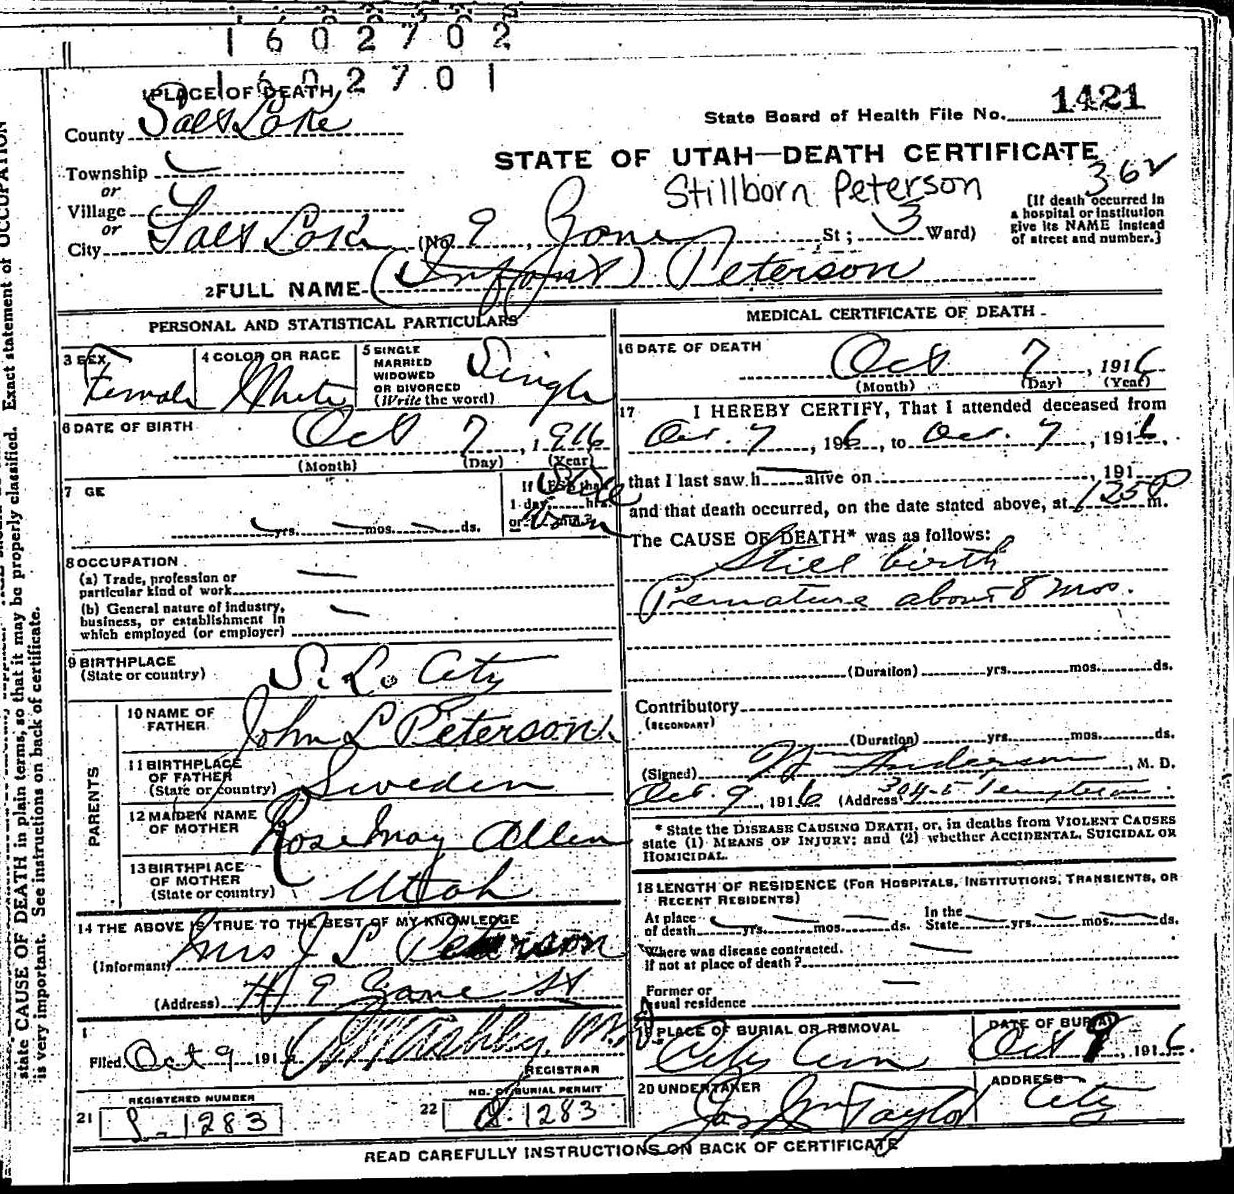 1602702
1602701
1 PLACE OF DEATH
County Salt Lake
State Board of Health File No. 1421
Township
or
Village
or
City Salt Lake (No. 9, Zane, St; 3 Ward)
STATE OF UTAH—DEATH CERTIFICATE
Stillborn Peterson
362
[If death occurred in
a hospital or institution
give its NAME instead
of street and number.]
2 FULL NAME (Infant) Peterson
PERSONAL AND STATISTICAL PARTICULARS
3 SEX Female
4 COLOR OR RACE White
5 SINGLE
MARRIED
WIDOWED
OR DIVORCED
(Write the word) Single
6 DATE OF BIRTH Oct 7, 1916
(Month) (Day) (Year)
7 GE
yrs. mos. ds.
If LESS than
1 day, hrs.
or min.?
Still
born
8 OCCUPATION
(a) Trade, profession or
particular kind of work
(b) General nature of industry,
business, or establishment in
which employed (or employer)
9 BIRTHPLACE
(State or country) S. L. City
PARENTS
10 NAME OF
FATHER John L Peterson
11 BIRTHPLACE
OF FATHER
(State or country) Sweden
12 MAIDEN NAME
OF MOTHER Rose May Allen
13 BIRTHPLACE
OF MOTHER
(State or country) Utah
14 THE ABOVE IS TRUE TO THE BEST OF MY KNOWLEDGE
(Informant) Mrs J L Peterson
(Address) # 9 Zane St
Filed Oct 9 191
REGISTRAR
REGISTERED NUMBER
21 L-1283
NO. OF BURIAL PERMIT
22 1283
MEDICAL CERTIFICATE OF DEATH
16 DATE OF DEATH
Oct 7, 1916
(Month) (Day) (Year)
17 I HEREBY CERTIFY, That I attended deceased from
Oct. 7, 1916, to Oct. 7, 1916,
that I last saw h alive on , 191
and that death occurred, on the date stated above, at 1250 P m.
The CAUSE OF DEATH* was as follows:
Still birth
Premature about 8 mos.
(Duration) yrs. mos. ds.
Contributory
(SECONDARY)
(Duration) yrs. mos. ds.
(Signed) Wm Anderson, M. D.
Oct. 9, 1916 (Address) 304-5 Templeton.
* State the DISEASE CAUSING DEATH, or, in deaths from VIOLENT CAUSES
state (1) MEANS OF INJURY; and (2) whether ACCIDENTAL, SUICIDAL OR
HOMICIDAL.
18 LENGTH OF RESIDENCE (FOR HOSPITALS, INSTITUTIONS, TRANSIENTS, OR
RECENT RESIDENTS)
At place
of death yrs. mos. ds.
In the
State yrs. mos. ds.
Where was disease contracted.
if not at place of death?
Former or
usual residence
19 PLACE OF BURIAL OR REMOVAL
City Cem
DATE OF BURIAL
Oct 9, 1916.
20 UNDERTAKER
Jos Wm Taylor
ADDRESS
City
READ CAREFULLY INSTRUCTIONS ON BACK OF CERTIFICATE
Exact statement of OCCUPATION
state CAUSE OF DEATH in plain terms, so that it may be properly classified.
is very important. See instructions on back of certificate.